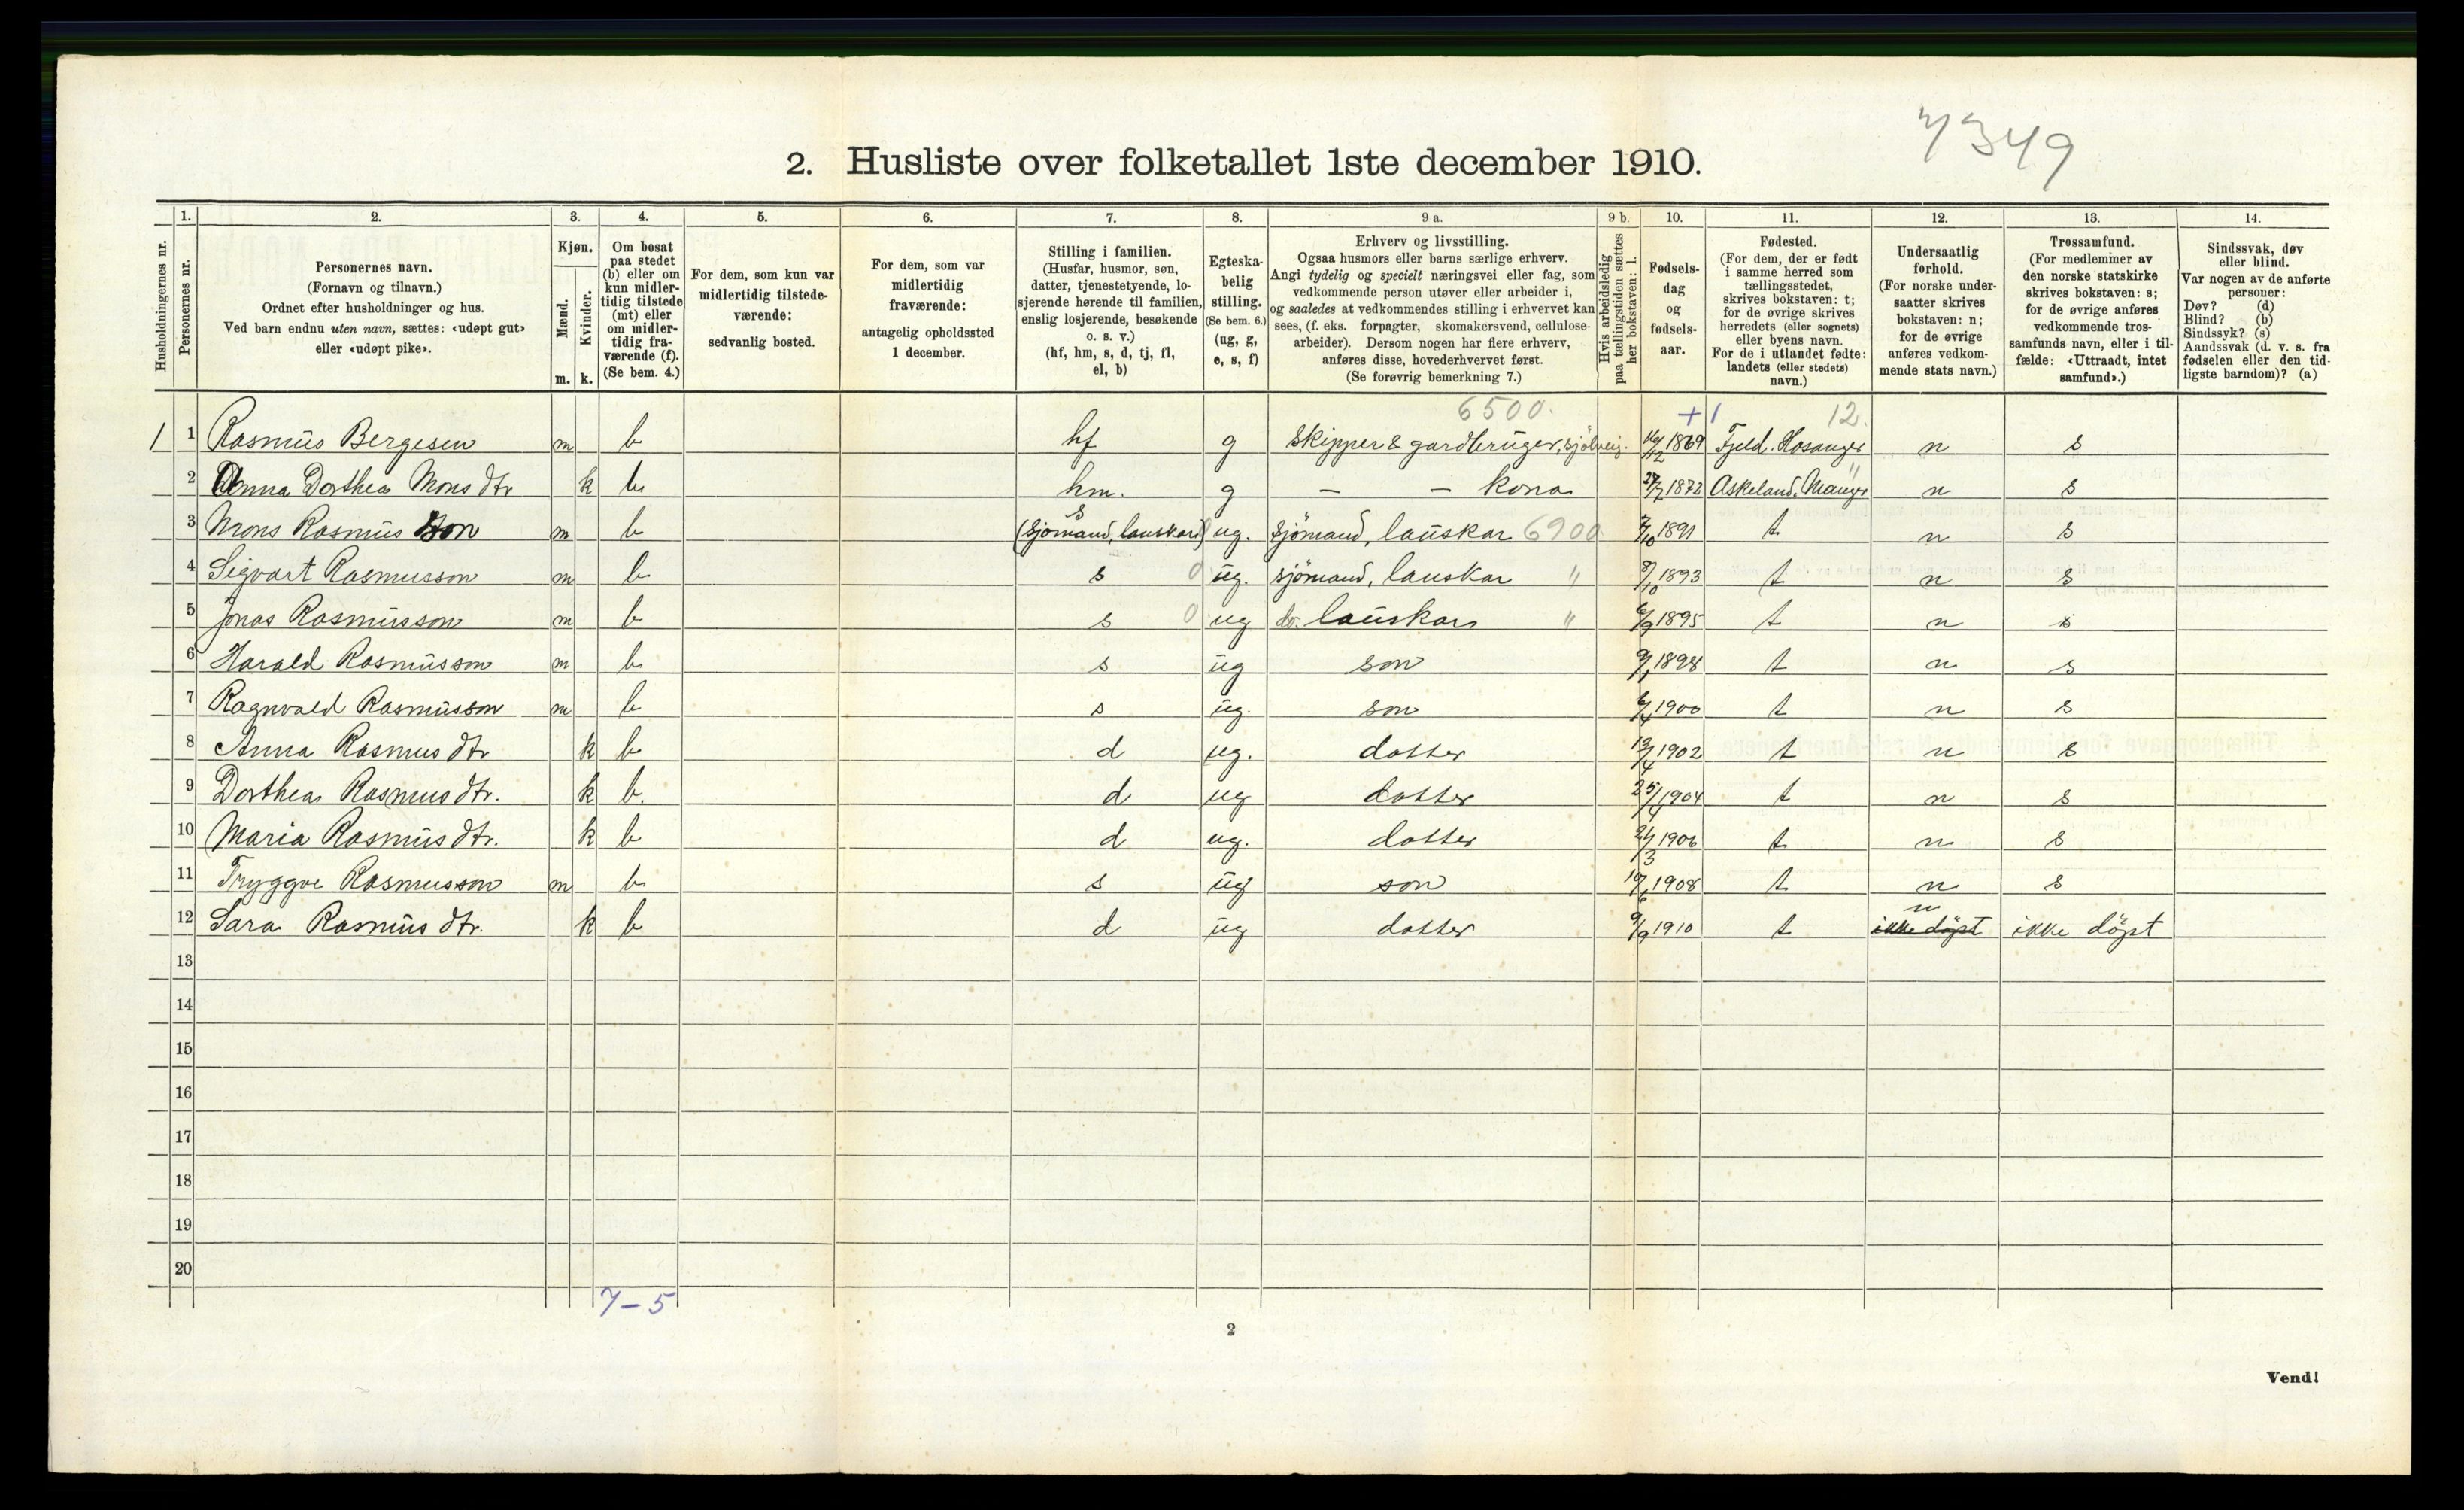 7349
2. Husliste over folketallet 1ste december 1910.
1. 2. 3. 4. 5. 6. 7. 8. 9 a. 9 b. 10. 11. 12. 13. 14.
Husholdningernes nr.
Personernes nr.
Personernes navn.
(Fornavn og tilnavn.)
Ordnet efter husholdninger og hus.
Ved barn endnu uten navn, sættes: «udøpt gut»
eller «udøpt pike».
Kjøn.
Mænd.
Kvinder.
m. k.
Om bosat
paa stedet
(b) eller om
kun midler-
tidig tilstede
(mt) eller
om midler-
tidig fra-
værende (f).
(Se bem. 4.)
For dem, som kun var
midlertidig tilstede-
værende:
sedvanlig bosted.
For dem, som var
midlertidig
fraværende:
antagelig opholdssted
1 december.
Stilling i familien.
(Husfar, husmor, søn,
datter, tjenestetyende, lo-
sjerende hørende til familien,
enslig losjerende, besøkende
o. s. v.)
(hf, hm, s, d, tj, fl,
el, b)
Egteska-
belig
stilling.
(Se bem. 6.)
(ug, g,
e, s, f)
Erhverv og livsstilling.
Ogsaa husmors eller barns særlige erhverv.
Angi tydelig og specielt næringsvei eller fag, som
vedkommende person utøver eller arbeider i,
og saaledes at vedkommendes stilling i erhvervet kan
sees, (f. eks. forpagter, skomakersvend, cellulose-
arbeider). Dersom nogen har flere erhverv,
anføres disse, hovederhvervet først.
(Se forøvrig bemerkning 7.)
Hvis arbeidsledig
paa tællingstiden sættes
her bokstaven: l.
Fødsels-
dag
og
fødsels-
aar.
Fødested.
(For dem, der er født
i samme herred som
tællingsstedet,
skrives bokstaven: t;
for de øvrige skrives
herredets (eller sognets)
eller byens navn.
For de i utlandet fødte:
landets (eller stedets)
navn.)
Undersaatlig
forhold.
(For norske under-
saatter skrives
bokstaven: n;
for de øvrige
anføres vedkom-
mende stats navn.)
Trossamfund.
(For medlemmer av
den norske statskirke
skrives bokstaven: s;
for de øvrige anføres
vedkommende tros-
samfunds navn, eller i til-
fælde: «Uttraadt, intet
samfund».)
Sindssvak, døv
eller blind.
Var nogen av de anførte
personer:
Døv? (d)
Blind? (b)
Sindssyk? (s)
Aandssvak (d. v. s. fra
fødselen eller den tid-
ligste barndom)? (a)
6500. +1 12.
1 1 Rasmus Bergesen m b hf g Skipper & gardbruger, sjölveig. 16/12 1869 Fjeld. Hosanger n s
2 Anna Dorthea Mons dtr k b hm. g — — kona 27/7 1872 Askeland, Manger " n s
3 Mons Rasmus son m b s (sjömand, lauskar) ug. sjömand, lauskar 6900 7/10 1891 t n s
4 Sigvart Rasmusson m b s 0 ug. sjömand, lauskar " 8/10 1893 t n s
5 Jonas Rasmusson m b s 0 ug do. lauskar " 6/9 1895 t n s
6 Harald Rasmusson m b s ug son 9/1 1898 t n s
7 Ragnvald Rasmusson m b s ug. son 6/4 1900 t n s
8 Anna Rasmus dtr k b d ug. dotter 19/4 1902 t n s
9 Dorthea Rasmus dtr. k b. d ug dotter 25/4 1904 t n s
10 Maria Rasmus dtr. k b d ug. dotter 24/3 1906 t n s
11 Tryggve Rasmusson m b s ug son 19/6 1908 t n s
12 Sara Rasmus dtr. k b d ug dotter 9/9 1910 t n ikke döpt ikke döpt
13
14
15
16
17
18
19
20
7–5
2
Vend!